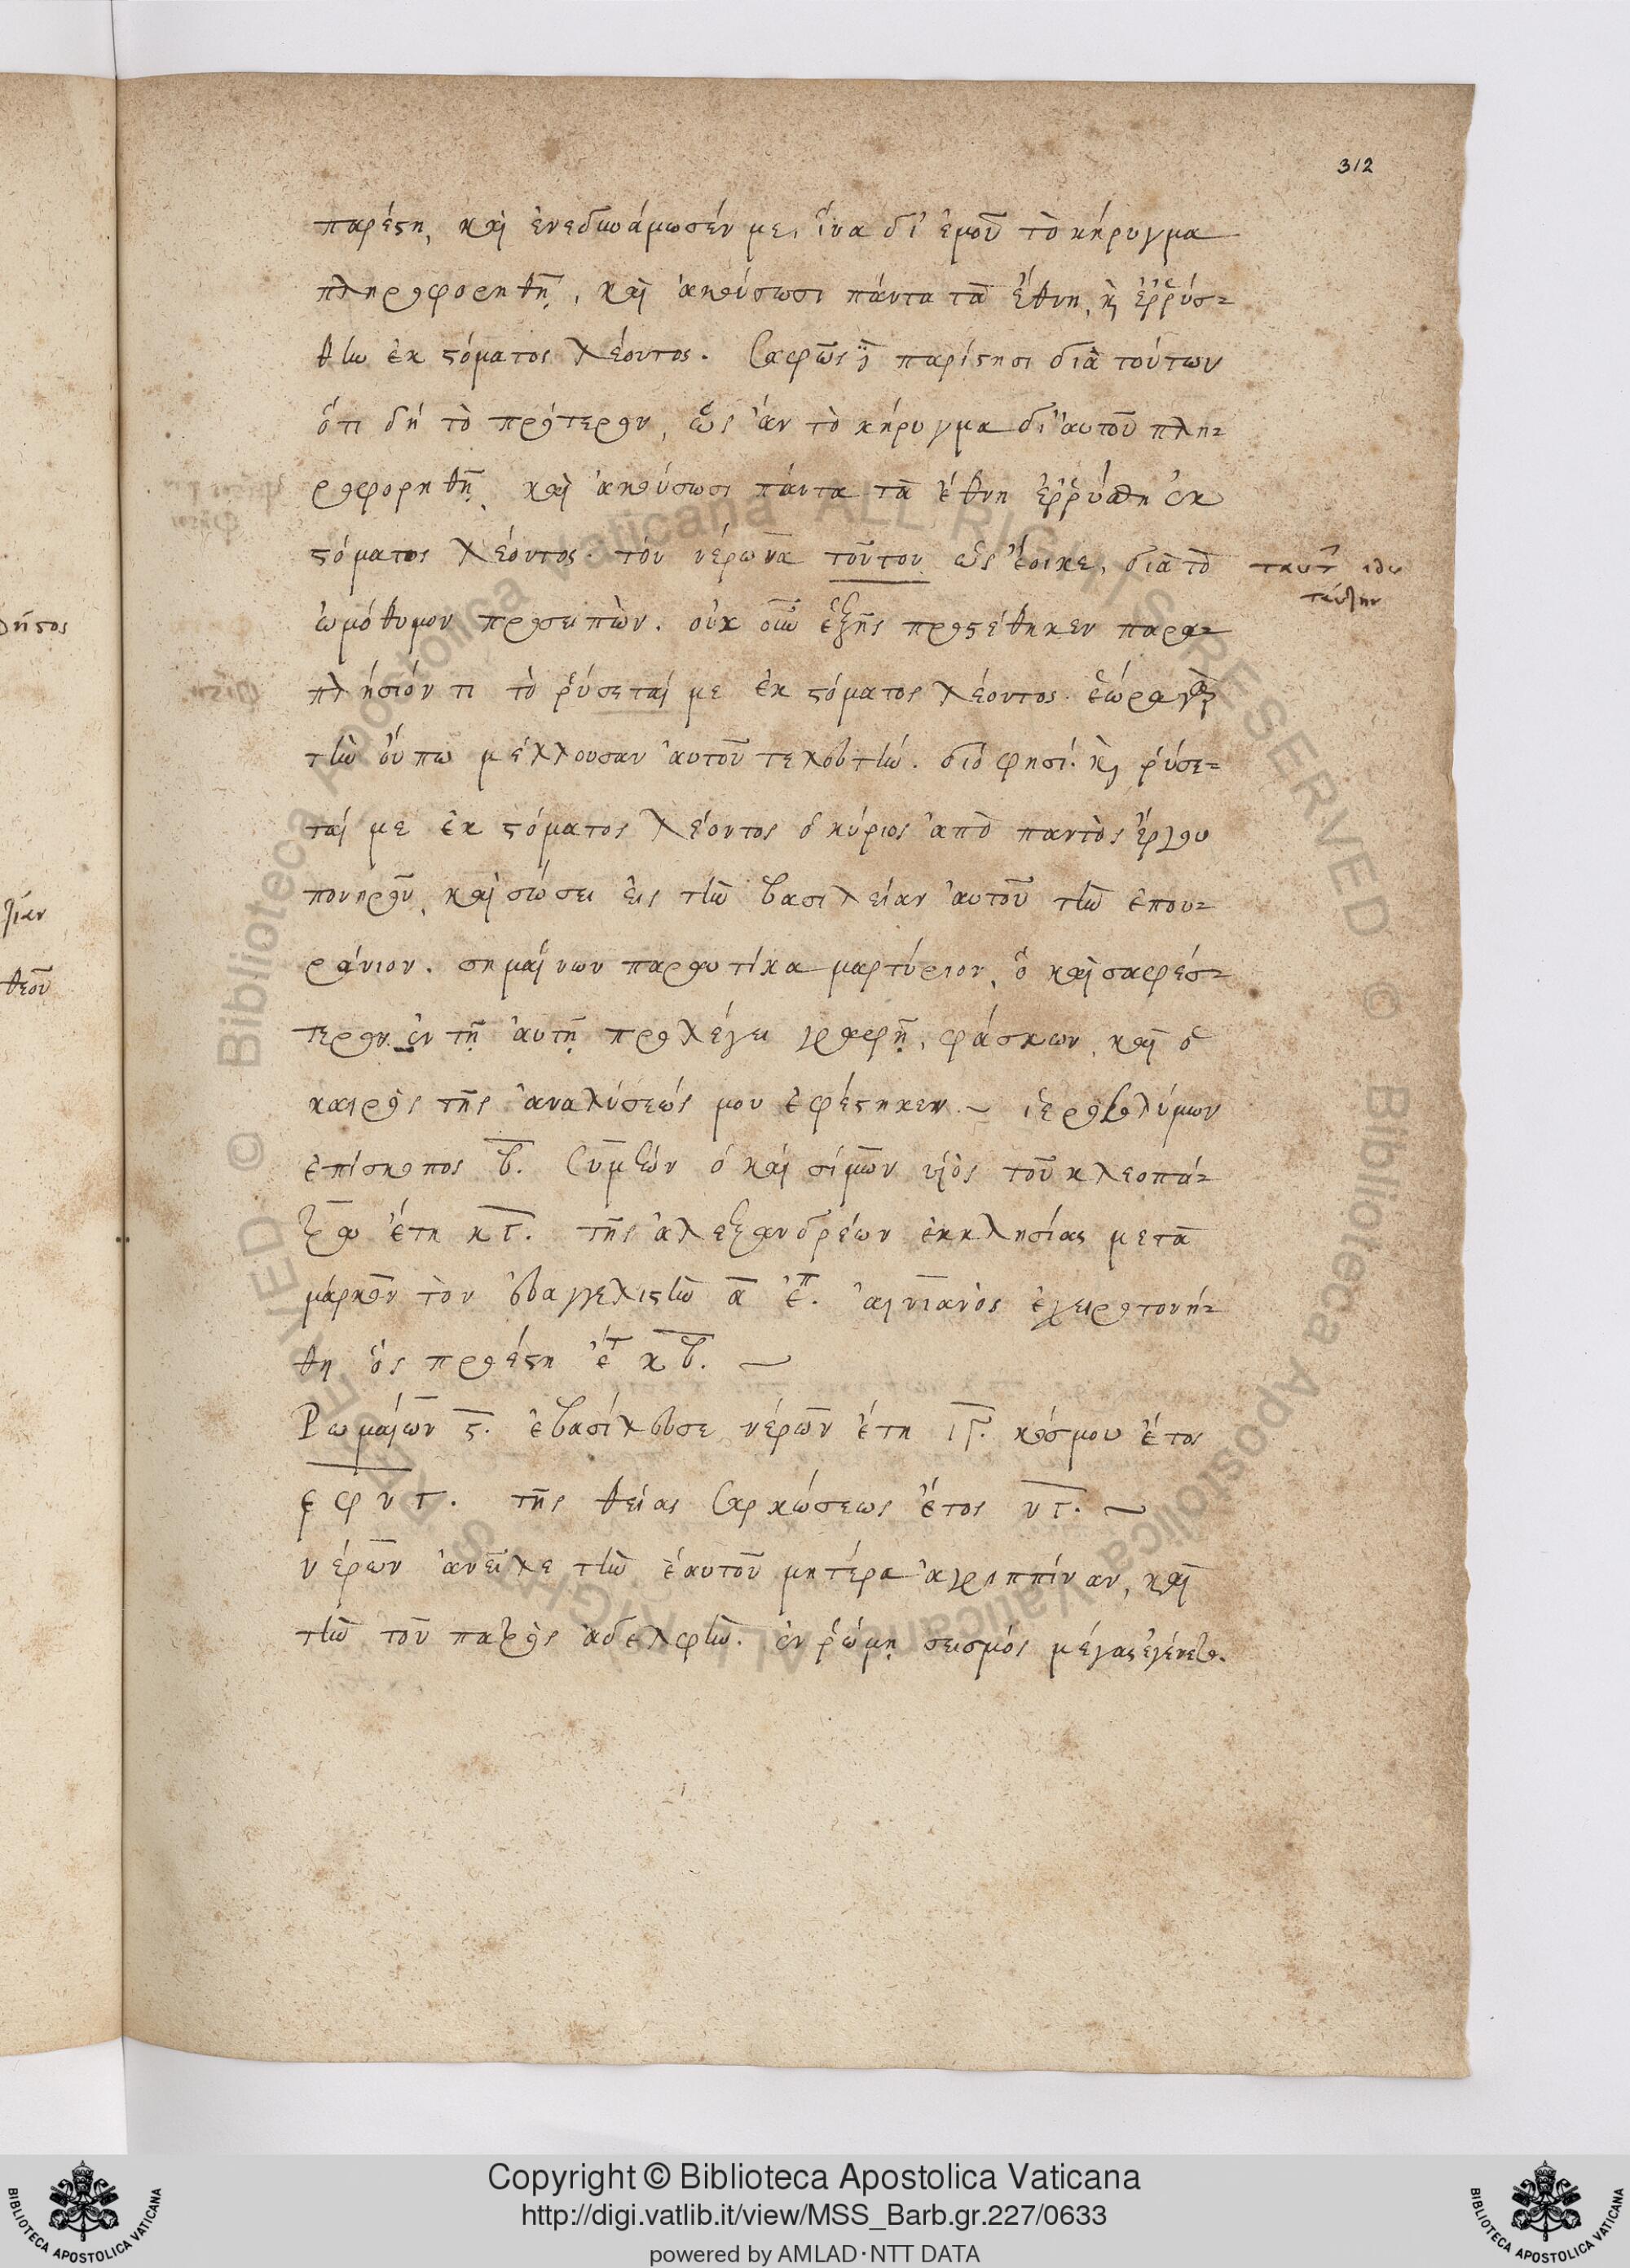 312
παρέστη, καὶ ἐνεδυνάμωσέν με, ἵνα δι' ἐμοῦ τὸ κήρυγμα
πληροφορηθῇ, καὶ ἀκούσωσι πάντα τὰ ἔθνη, κ̣ ἐρρύσ-
θην ἐκ στόματος λέοντος. Σαφῶς δὲ παρίστησι διὰ τούτων
ὅτι δὴ τὸ πρότερον, ὡς ἂν τὸ κήρυγμα δι' αὐτοῦ πλη-
ροφορηθῇ, καὶ ἀκούσωσι πάντα τὰ ἔθνη ἐρρύσθη ἐκ
στόματος λέοντος. τὸν νέρωνα τοῦτον ὡς ἔοικε, διὰ τὸ
ὠμόθυμον προσειπὼν. οὐκ οὖν ἑξῆς προστέθηκεν παρα-
πλήσιόν τι τὸ ῥύσεταί με ἐκ στόματος λέοντος. ἑώρα γὰρ
τὴν οὔπω μέλλουσαν αὐτοῦ τελευτήν. διό φησί. κ̣ ῥύσε-
ταί με ἐκ στόματος λέοντος ὁ κύριος ἀπὸ παντὸς ἔργου
πονηροῦ, καὶ σώσει εἰς τὴν βασιλείαν αὐτοῦ τὴν ἐπου-
ράνιον. σημαίνων παραυτίκα μαρτύριον, ὃ καὶ σαφέσ-
τερον ἐν τῇ αὐτῇ προλέγει γραφῇ, φάσκων, καὶ ὁ
καιρὸς τῆς ἀναλύσεώς μου ἐφέστηκεν. ~ ἱεροσολύμων
ἐπίσκοπος β. Συμεὼν ὁ καὶ σίμων υἱὸς τοῦ κλεοπά-
τρου ἔτη κγ. τῆς ἀλεξανδρέων ἐκκλησίας μετὰ
μάρκον τὸν εὐαγγελιστὴν α ἐπ. αἰνιανὸς ἐχειροτονή-
θη ὃς προέστη ἐτ κβ. ~
Ρωμαίων ς. ἐβασίλευσε νέρων ἔτη ιγ. κόσμου ἔτος
εφνγ. τῆς θείας σαρκώσεως ἔτος νγ. ~
νέρων ἀνεῖλε τὴν ἑαυτοῦ μητέρα ἀγριππίναν, καὶ
τὴν τοῦ πατρὸς ἀδελφὴν. ἐν ῥώμῃ σεισμὸς μέγας ἐγένετο.
θεοῦ
Copyright © Biblioteca Apostolica Vaticana
http://digi.vatlib.it/view/MSS_Barb.gr.227/0633
powered by AMLAD·NTT DATA
BIBLIOTECA APOSTOLICA VATICANA
BIBLIOTECA APOSTOLICA VATICANA